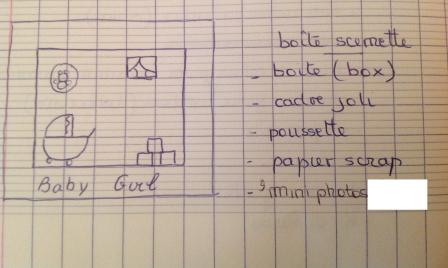 boîte scenette
- boite (box)
- cadre joli
- poussette
- papier scrap
- mini photos
Baby Girl